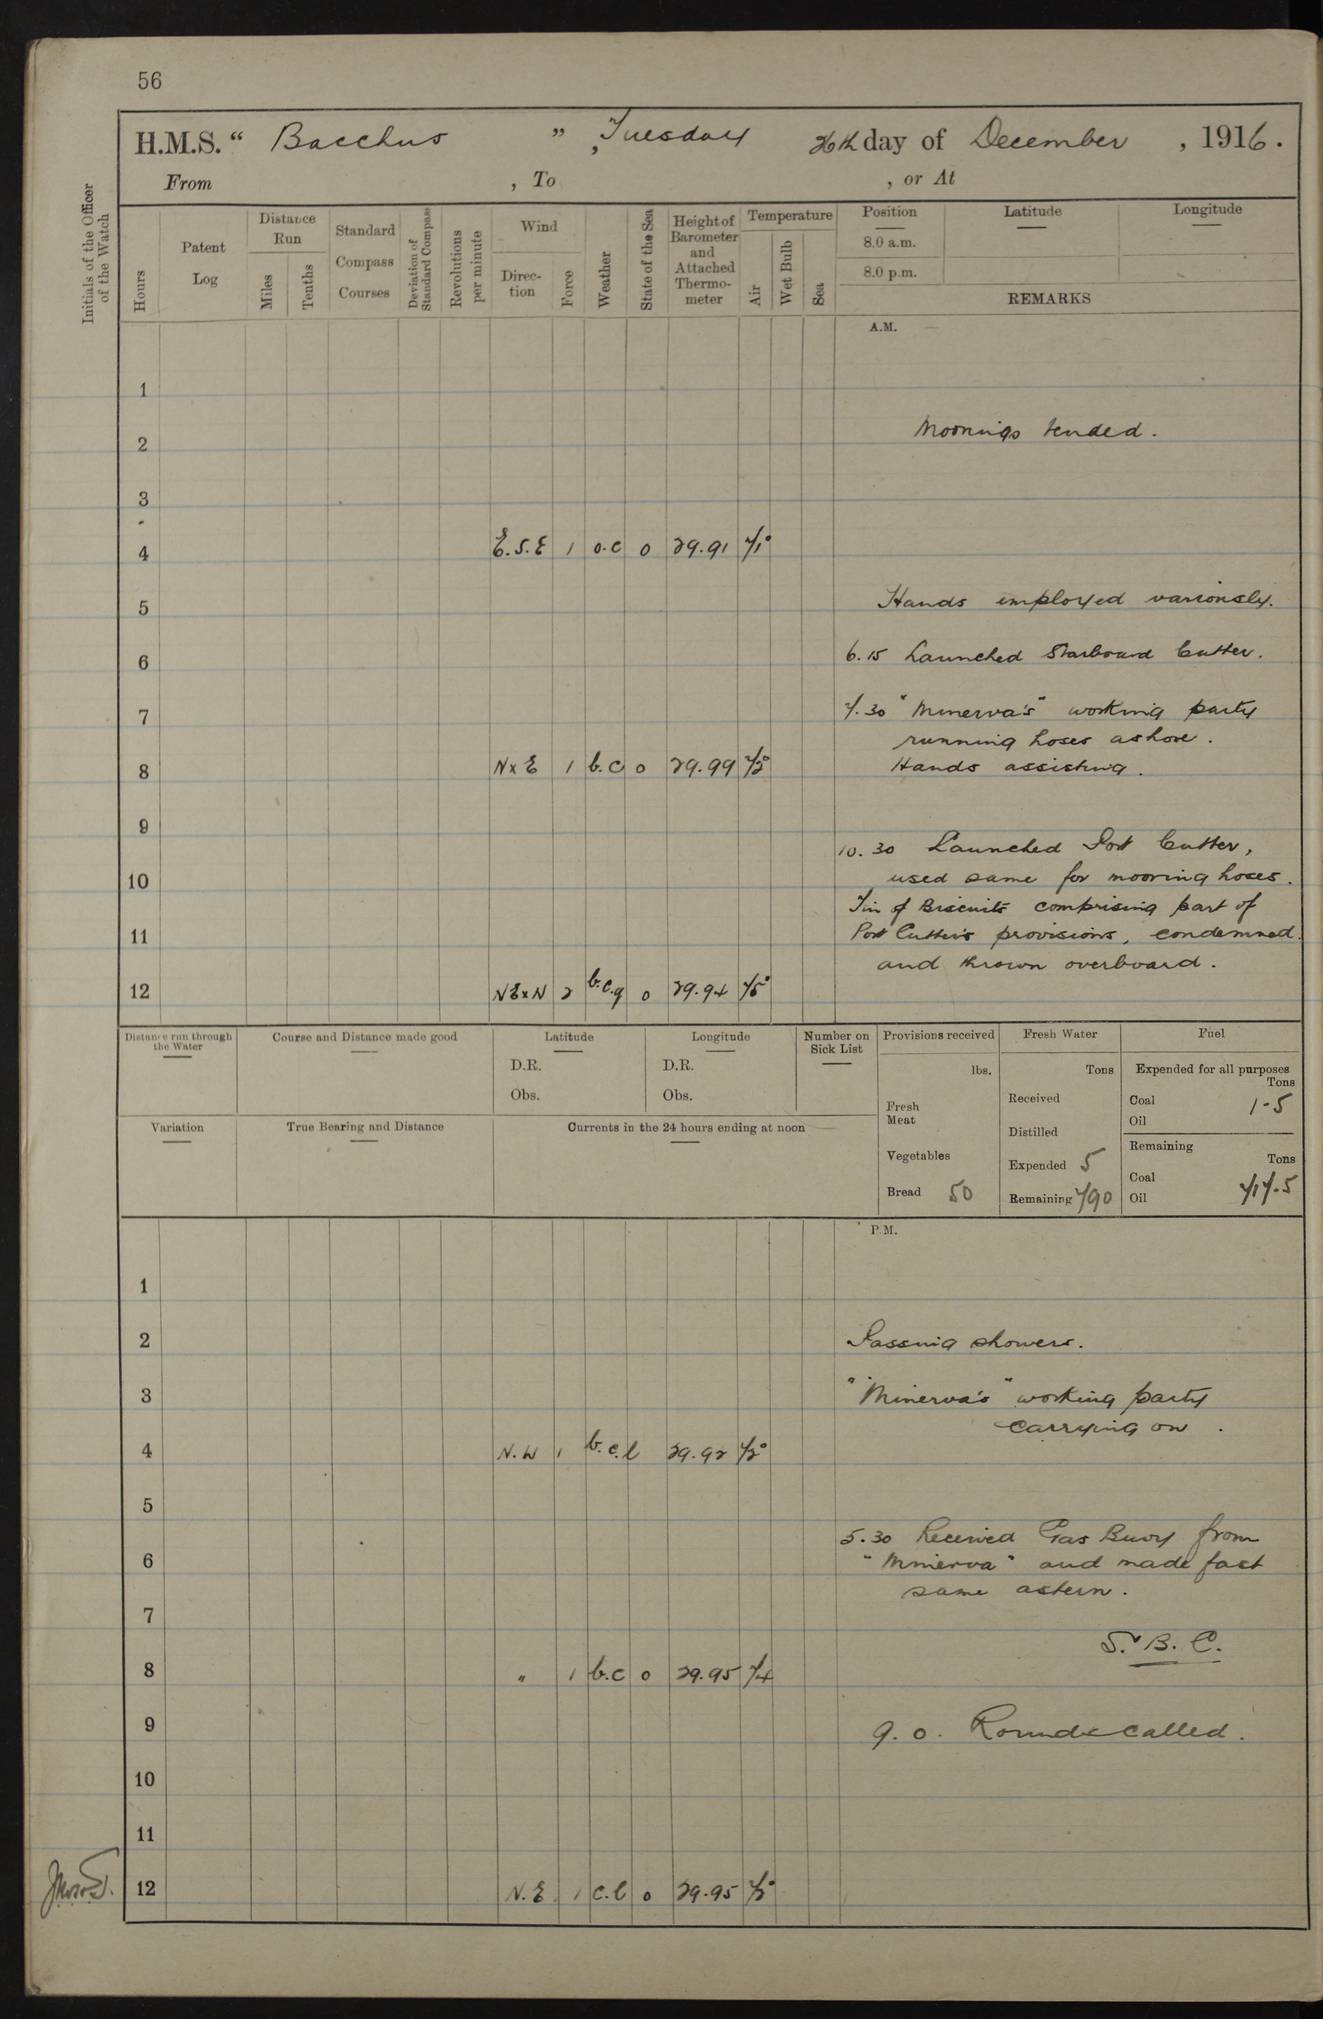 56
H.M.S. “ Bacchus ” , Tuesday 26th day of December , 1916 .
From , To , or At
Initials of the Officer of the Watch
Hours
Patent Log
Distance Run
Miles
Tenths
Standard Compass Courses
Deviation of Standard Compass
Revolutions per minute
Wind
Direc- tion
Force
Weather
State of the Sea
Height of Barometer and Attached Thermo- meter
Temperature
Air
Wet Bulb
Sea
Position
8.0 a.m.
8.0 p.m.
Latitude
Longitude
REMARKS
A.M.
1
Moorings tended .
2
3
4 E.S.E 1 o.c 0 29.91 71°
Hands employed variously.
5
6.15 Launched Starboard Cutter .
6
7.30 "Minerva's" working party
7
running hoses ashore .
8 N x E 1 b.c 0 29.99 72° Hands assisting .
9
10.30 Launched Port Cutter ,
10 used same for mooring hoses .
Tin of Biscuits comprising part of
11 Port Cutter's provisions , condemned
and thrown overboard .
12 NE x N 2 b.c.q 0 29.94 75°
Distance run through the Water
Course and Distance made good
Latitude
D.R.
Obs.
Longitude
D.R.
Obs.
Number on Sick List
Provisions received
lbs.
Fresh Meat
Vegetables
Bread 50
Fresh Water
Tons
Received
Distilled
Expended 5
Remaining 790
Fuel
Expended for all purposes
Tons
Coal 1-5
Oil
Remaining
Tons
Coal
Oil 717-5
Variation
True Bearing and Distance
Currents in the 24 hours ending at noon
P.M.
1
2 Passing showers .
3 "Minerva's" working party
carrying on .
4 N.W 1 b.c.l 29.92 72°
5
5.30 Received Gas Buoy from
6 "Minerva" and made fast
same astern .
7
S. B. C.
8 " 1 b.c 0 29.95 74
9 9.0. Rounds called .
10
11
12 N.E 1 c.l 0 29.95 72°